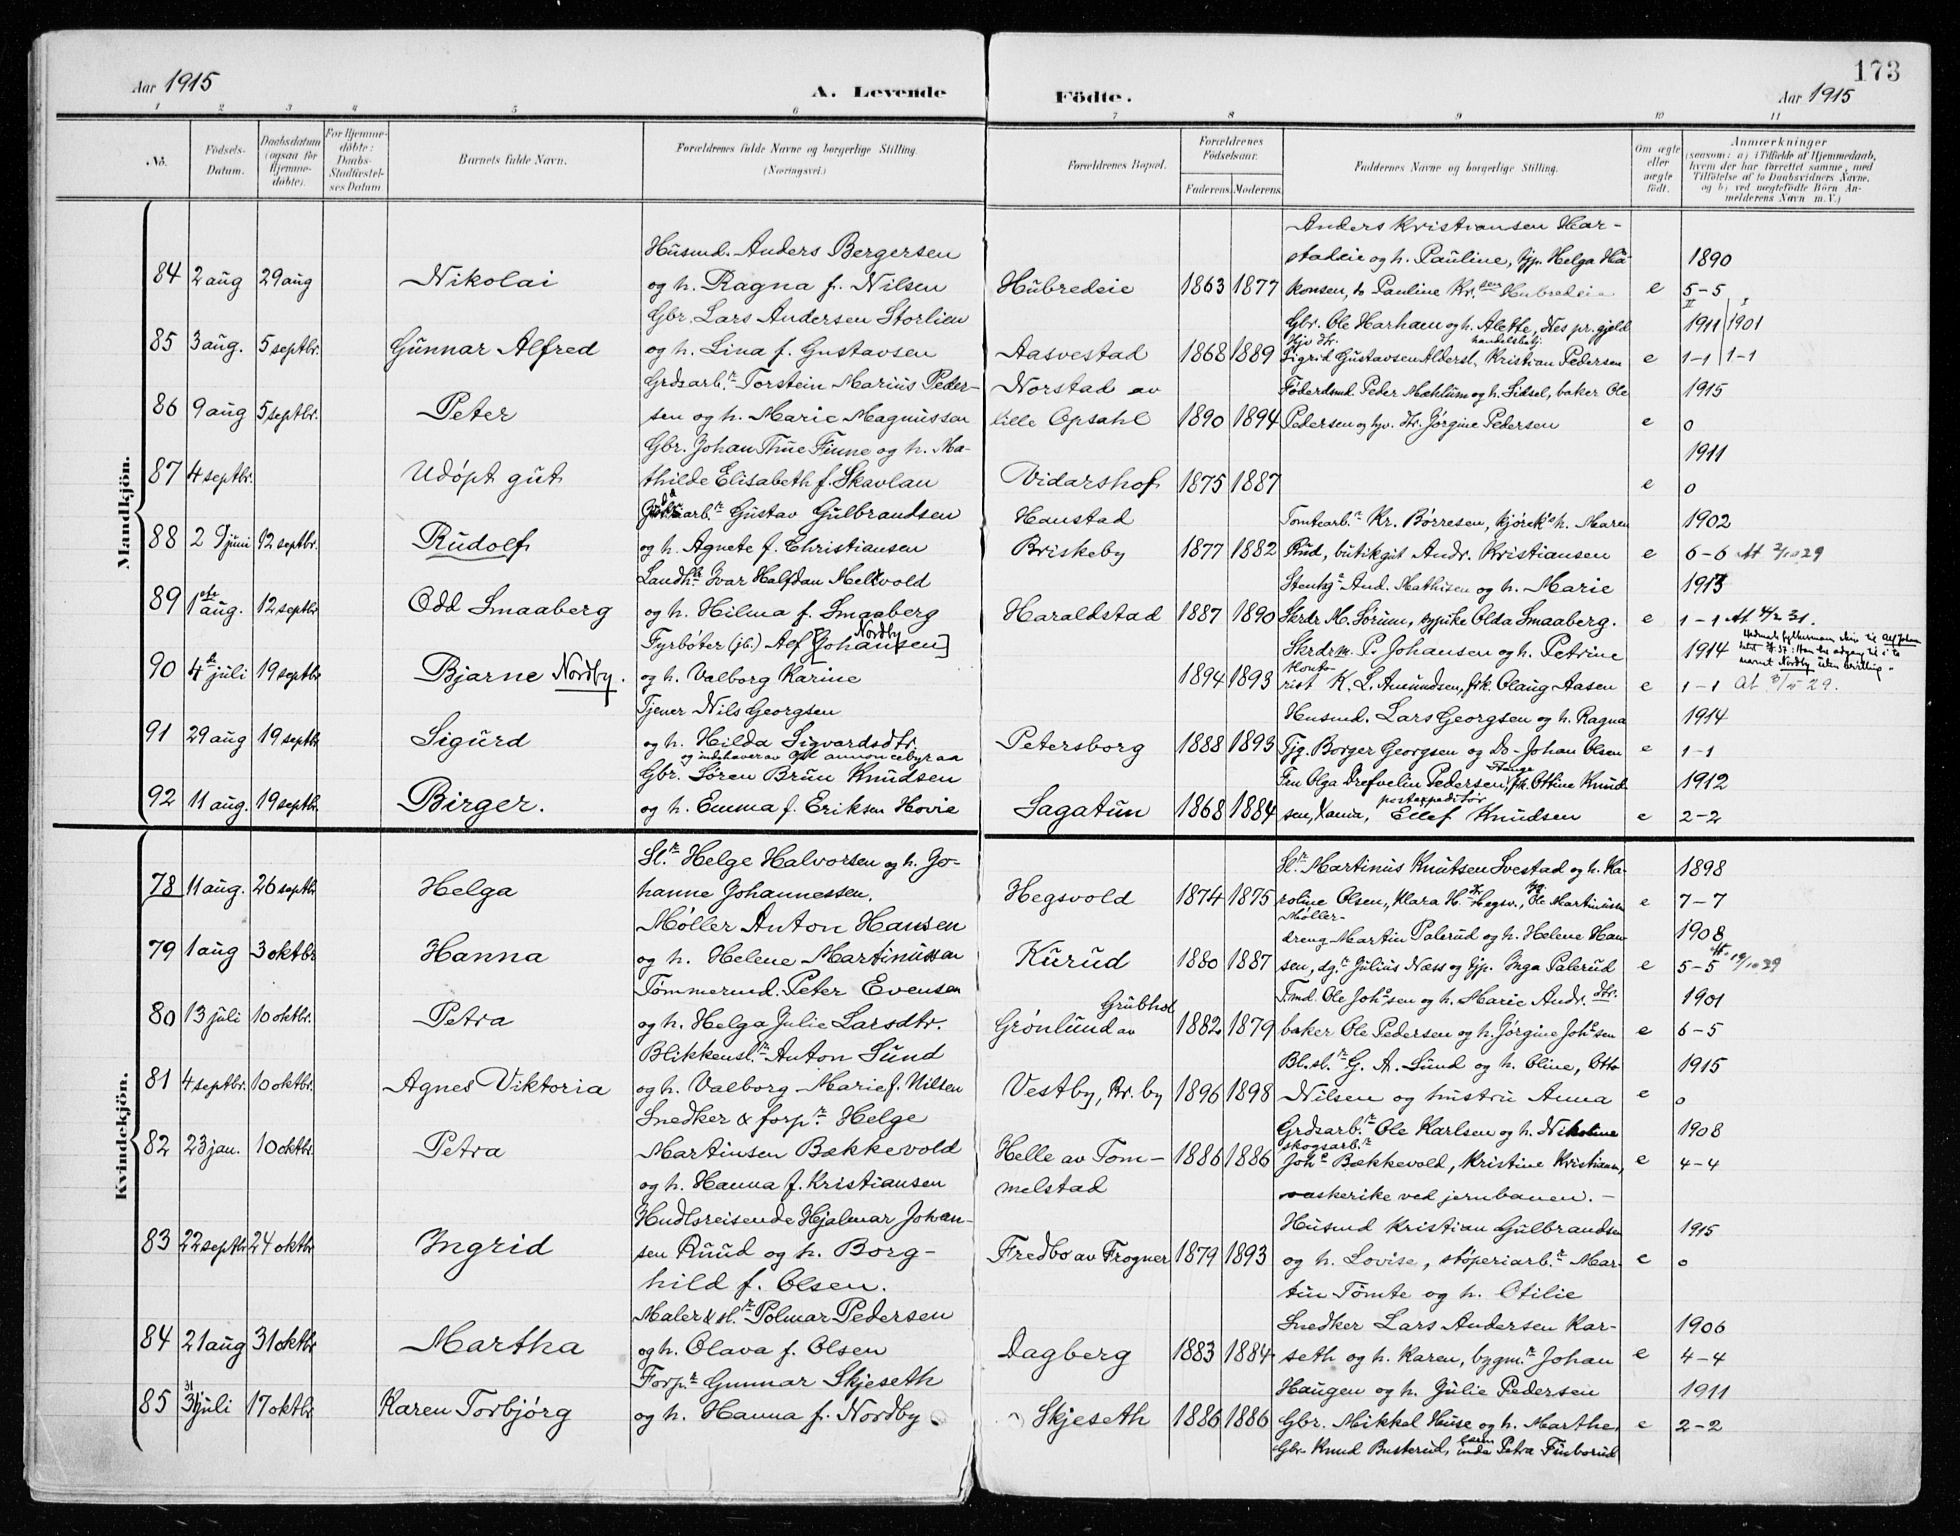 173
Aar 1915
A. Levende
Födte.
Aar 1915
1 2 3 4 5 6 7 8 9 10 11
No.
Födsels-Datum.
Daabsdatum (ogsaa for Hjemme-döbte).
For Hjemme-döbte: Daabs-Stadfæstel-ses Datum
Barnets fulde Navn.
Forældrenes fulde Navne og borgerlige Stilling. (Næringsvei.)
Forældrenes Bopæl.
Forældrenes Födselsaar.
Faderens. Moderens.
Faddernes Navne og borgerlige Stilling.
Om ægte eller uægte födt.
Anmærkninger
(saasom: a) i Tilfælde af Hjemmedaab,
hvem der har forrettet samme, med
Tilföielse af to Daabsvidners Navne,
og b) ved uægtefödte Börn An-
melderens Navn m. V.)
Mandkjön.
Anders Kristiansen Har-
Husmd. Anders Bergersen stadeie og h. Pauline, tjp. Helga Hå- 1890
84 2 aug 29 aug Nikolai og h. Ragna f. Nilsen Hubredeie 1863 1877 konsen, do Pauline Kr.sen Hubredeie e 5-5
Gbr. Lars Andersen Storlien Gbr. Ole Harhaem og h. Alette, Nes pr.gjeld 1911 1901
85 3 aug. 5 septbr. Gunnar Alfred og h. Lina f. Gustavsen Aasvestad 1868 1889 Sigrid Gustavsen Aldersl, Kristian Pedersen e 1-1 1-1
Grdsarb.r Torstein Marius Peder- Norstad av Föderdsmd. Peder Mæhlum og h. Sidsel, baker Ole 1915
86 9 aug 5 septbr. Peter sen og h. Marie Magnussen lille Opsahl 1890 1894 Pedersen og hjv. dtr. Jørgine Pedersen e 0
Gbr. Johan Thue Finne og h. Ma- 1911
87 4 septbr. Udøpt gut thilde Elisabeth f. Skavlan Vidarshof 1875 1887 e 0
Gustav Gulbrandsen Hanstad Tomtearb.r Kr. Børresen, h. Maren 1902
88 2 juni 12 septbr. Rudolf og h. Agnete f. Christiansen Briskeby 1877 1882 Rud, butikgut Andr. Kristiansen e 6-6
Landh. Ivar Halfdan Melvold Stenhg. And. Mathisen og h. Marie 1913
89 1 aug. 12 septbr Odd Smaaberg og h. Hilma f. Smaaberg Haraldstad 1887 1890 Skrdr M. Sörum, typike Olda Smaaberg. e 1-1 At. 4/2 31.
Fyrbøter (jb.) Alf [Johansen] Nordby Skrdrm. P. Johansen og h. Petrine 1914
90 4 juli 19 septbr Bjarne Nordby. og h. Valborg Karine 1894 1893 Kontorist K. L. Amundsen, frk. Olaug Aasen e 1-1 At 3/5 29.
Tjener Nils Georgsen Husmd. Lars Georgsen og h. Ragna 1914
91 29 aug 19 septbr Sigurd og h. Hilda Sigvardsdtr. Petersborg 1888 1893 Tjg. Borger Georgsen og Do- Johan Olsen e 1-1
og indehaver av Opl. annoncebyraa
Gbr. Søren Brun Knudsen Fru Olga Drefvelin Pedersen, Stange, frk. Ottine Knud- 1912
92 11 aug. 19 septbr. Birger. og h. Emma f. Eriksen Hovie Sagatun 1868 1884 sen, Xania, postexpeditør Ellef Knudsen e 2-2
Kvindekjön.
Sl.r Helge Halvorsen og h. Jo- Sl.r Martinus Knutsen Svestad og h. Ka- 1898
78 11 aug. 26 septbr Helga hanne Johannessen. Hegsvold 1874 1875 roline Olsen, Klara H. Hegsv., Ole Martinussen e 7-7
Møller Anton Hansen Møller- dreng Martin Palerud og h. Helene Han- 1908
79 1 aug 3 oktbr Hanna og h. Helene Martinussen Kurud 1880 1887 sen, dg.r Julius Næss og tjp. Inga Palerud e 5-5 At. 19/10 39
Tømmermd. Peter Evensen Grubhol Tmd. Ole Joh.sen og h. Marie Andr. dtr. 1901
80 13 juli 10 oktbr. Petra og h. Helga Julie Larsdtr. Grønlund av 1882 1879 baker Ole Pedersen og h. Jørgine Joh.sen e 6-5
Blikkensl.r Anton Sund Bl.sl.r G. A. Sund og h. Oline, Otto 1915
81 4 septbr. 10 oktbr. Agnes Viktoria og h. Valborg Marie f. Nilsen Vestby, Br. by 1896 1898 Nilsen og hustru Anna e 0
Snedker & forp.r Helge Grdsarb.r Ole Karlsen og h. Nikoline 1908
82 23 jan. 10 oktbr. Petra Martinsen Bækkevold Helle av Tom- 1886 1886 skogsarb.r Joh.s Bækkevold, Kristine Kristiansen, e 4-4
og h. Hanna f. Kristiansen melstad vaskerike ved jernbanen. -
Hndlsreisende Hjalmar Johan- Husmd Kristian Gulbrandsen 1915
83 22 septbr 24 oktbr Ingrid sen Ruud og h. Borg- Fredbo av Frogner 1879 1893 og h. Lovise, støperiarb.r Mar- e 0
hild f. Olsen. tin Tømte og h. Otilie
Maler & sl.r Polmar Pedersen Snedker Lars Andersen Kar- 1906
84 21 aug 31 oktbr Martha og h. Olava f. Olsen Dagberg 1883 1884 seth og h. Karen, bygm.r Johan e 4-4
Forp.r Gunnar Skjeseth Haugen og h. Julie Pedersen 1911
85 31 juli 17 oktbr Karen Torbjørg og h. Hanna f. Nordby Skjeseth 1886 1886 Gbr. Mikkel Huse og h. Marthe, e 2-2
Gbr. Knud Busterud, Petra Finborud